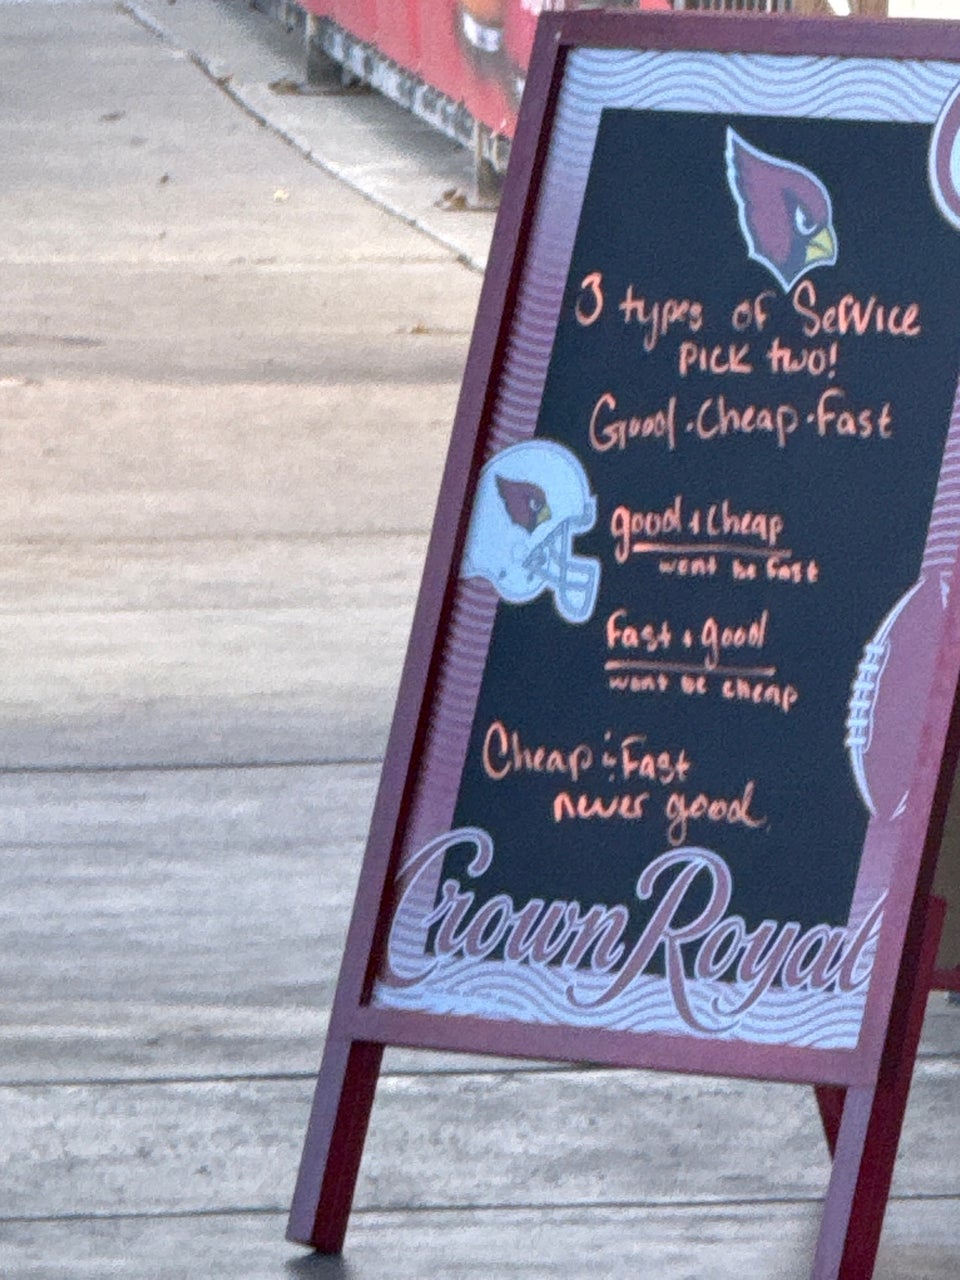 3 types of Service
PICK two!
Good · Cheap · Fast
good & Cheap
wont be fast
Fast & good
wont be cheap
Cheap & Fast
never good
Crown Royal